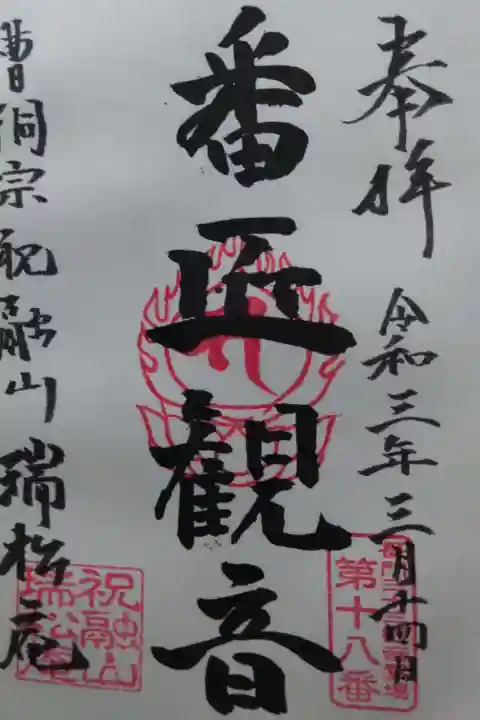 奉拝 令和三年三月十四日
第十八番
番正観音
曹洞宗祝融山瑞松庵
祝融山
瑞松庵